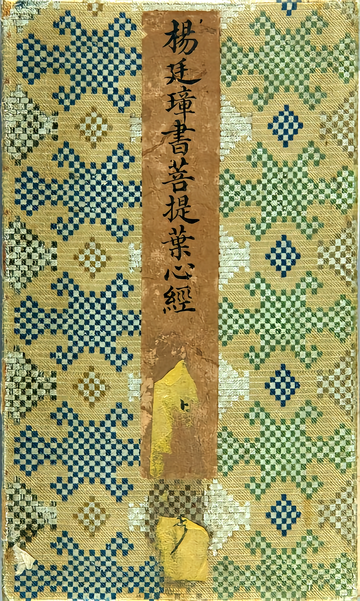 楊廷璋書菩提葉心經